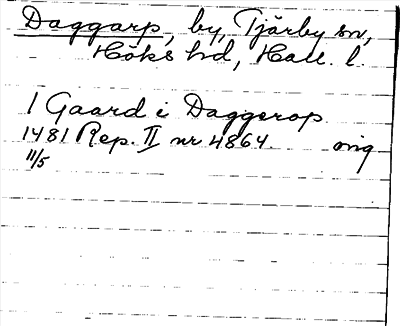 Daggarp, by, Tjärby sn,
Höks hd, Hall. l.
1 Gaard i Daggerop
1481 Rep. II nr 4864. orig
11/5